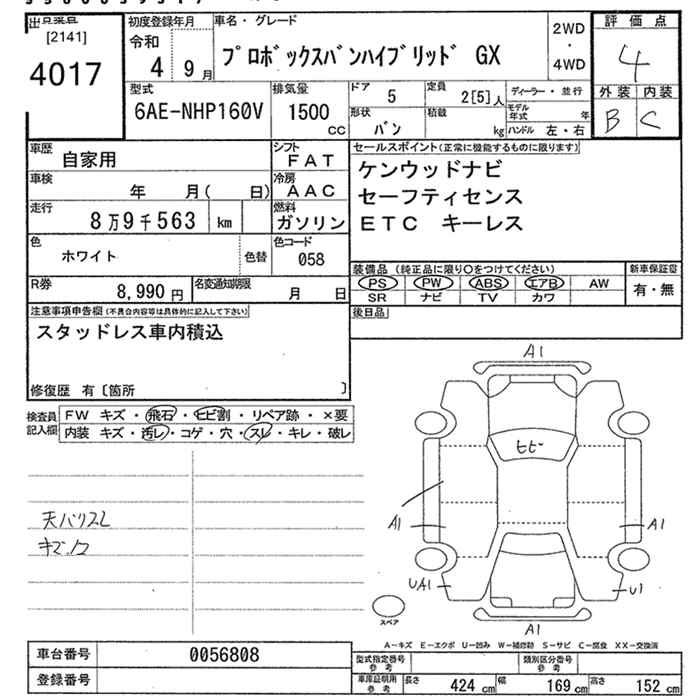 [2141]
4017
初度登録年月
令和
4 9月
車名・グレード
プロボックスバンハイブリッド GX
2WD
・
4WD
評価点
4
外装 内装
B C
型式
6AE-NHP160V
排気量
1500
cc
ドア
5
定員
2[5]人
形状
バン
積載
kg
ディーラー・並行
モデル年式 年
ハンドル 左・右
車歴
自家用
シフト
FAT
車検
年 月( 日)
冷房
AAC
走行
8万9千563 km
燃料
ガソリン
色
ホワイト
色替
色コード
058
R券
8,990円
名変通知期限
月 日
セールスポイント(正常に機能するものに限ります)
ケンウッドナビ
セーフティセンス
ETC キーレス
装備品(純正品に限り〇をつけてください)
PS PW ABS エアB AW
SR ナビ TV カワ
新車保証書
有・無
後日品
注意事項申告欄(不具合内容等は具体的に記入して下さい)
スタッドレス車内積込
修復歴 有〔箇所 〕
検査員記入欄
FW キズ・飛石・ヒビ割・リペア跡・×要
内装 キズ・汚レ・コゲ・穴・スレ・キレ・破レ
キズ
A1
ヒビ
A1
A1
UA1
U1
A1
スペア
A－キズ E－エクボ U－凹み W－補修跡 S－サビ C－腐食 XX－交換済
車台番号
0056808
登録番号
型式指定番号参考
類別区分番号参考
車庫証明用参考
長さ 424 cm 幅 169 cm 高さ 152 cm